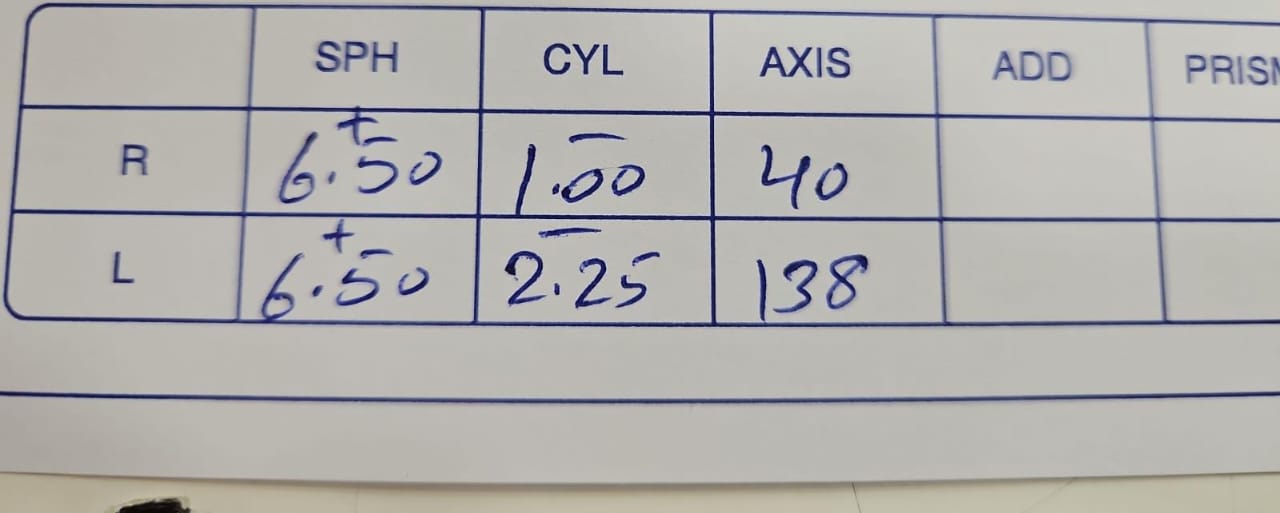 SPH CYL AXIS ADD PRISM
R +6.50 -1.00 40
L +6.50 -2.25 138